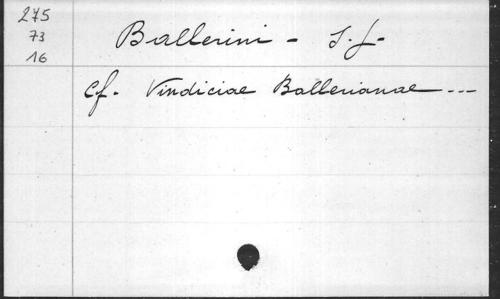 275
73
16
Ballerini - S.J-
Cf. Vindiciae Ballerianae ---